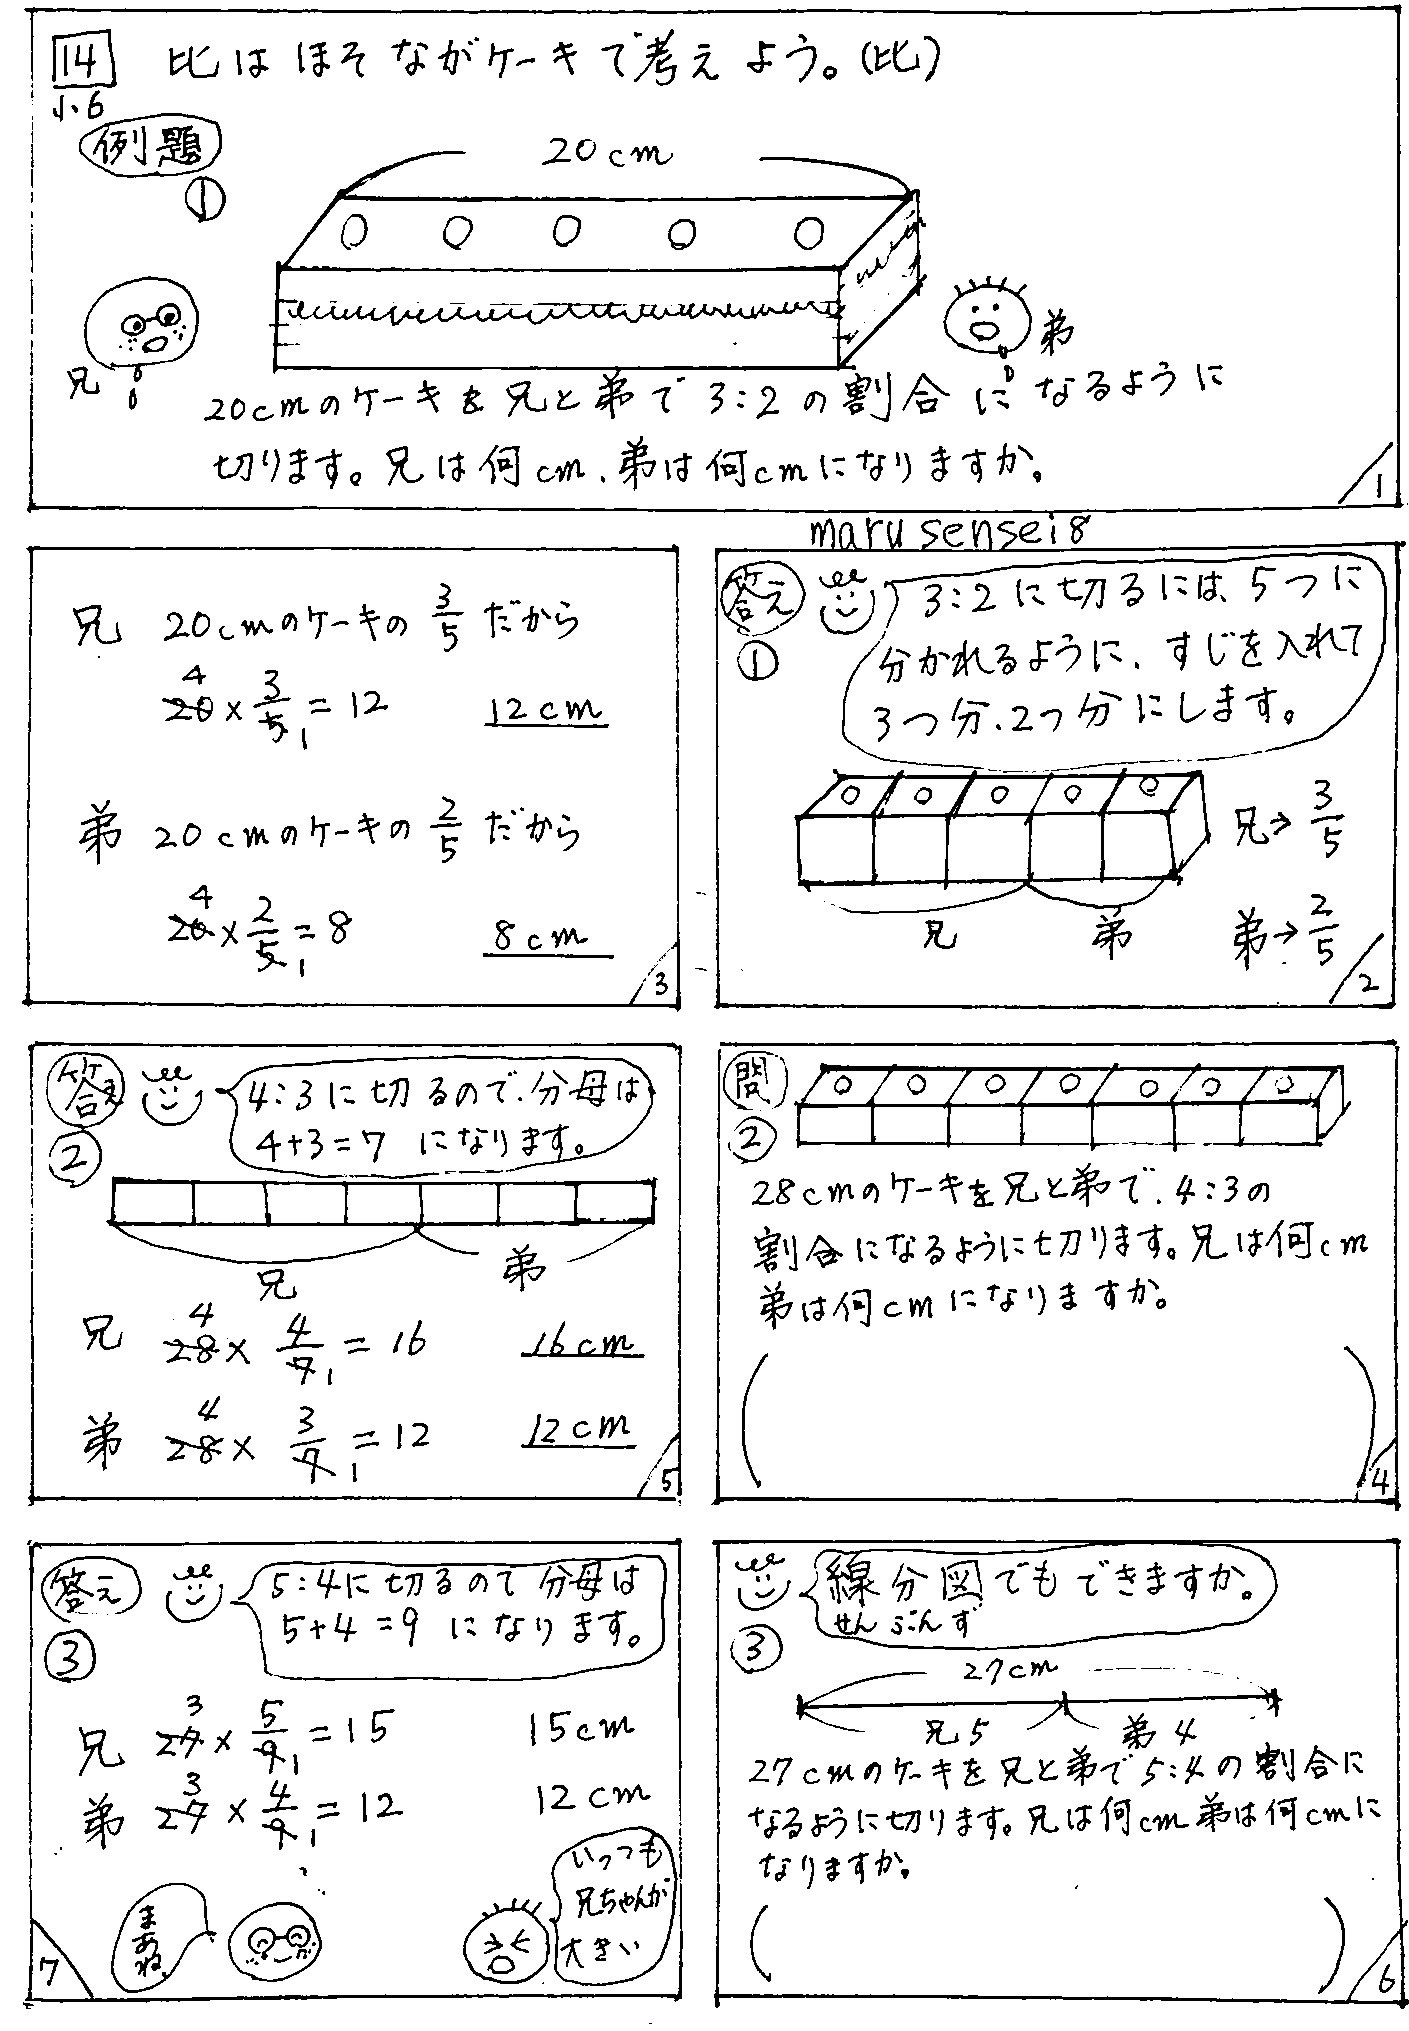 14 比はほそながケーキで考えよう。(比)
小.6
例題
①
20cm
兄
弟
20cmのケーキを兄と弟で3:2の割合になるように
切ります。兄は何cm、弟は何cmになりますか。
1
marusensei8
答え
①
3:2に切るには、5つに
分かれるように、すじを入れて
3つ分、2つ分にします。
兄→3/5
兄 弟
弟→2/5
2
兄 20cmのケーキの3/5だから
4
20×3/5=12 12cm
1
弟 20cmのケーキの2/5だから
4
20×2/5=8 8cm
1
3
問
②
28cmのケーキを兄と弟で、4:3の
割合になるように切ります。兄は何cm
弟は何cmになりますか。
( )
4
答え
②
4:3に切るので、分母は
4+3=7 になります。
兄 弟
4
兄 28×4/7=16 16cm
1
4
弟 28×3/7=12 12cm
1
5
線分図でもできますか。
せんぶんず
③
27cm
兄5 弟4
27cmのケーキを兄と弟で5:4の割合に
なるように切ります。兄は何cm弟は何cmに
なりますか。
( )
6
答え
③
5:4に切るので分母は
5+4=9 になります。
3
兄 27×5/9=15 15cm
1
3
弟 27×4/9=12 12cm
1
まあね。
いっつも
兄ちゃんが
大きい
7